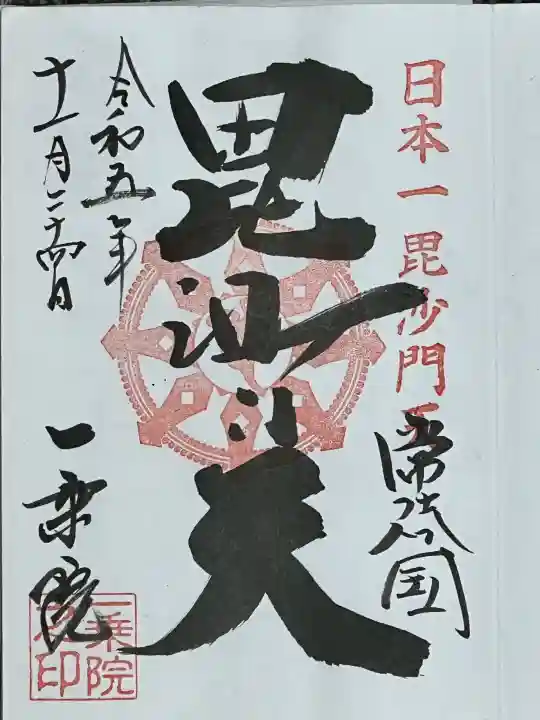 日本一毘沙門天
常陸国
毘沙門天
令和五年
十一月二十四日
一乗院
一乗院之印